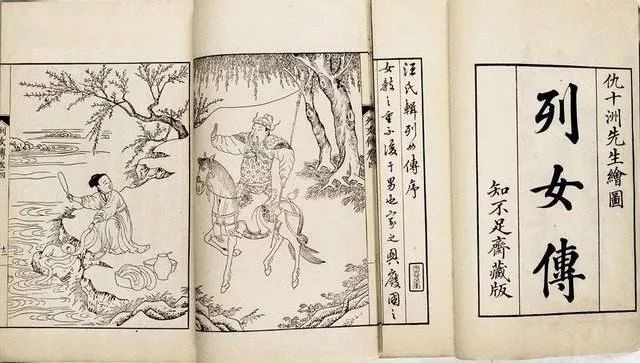 仇十洲先生繪圖
列女傳
知不足齋藏版
汪氏輯列女傳序
女教之重不後于男也家之興廢國之
列女傳卷四
十二